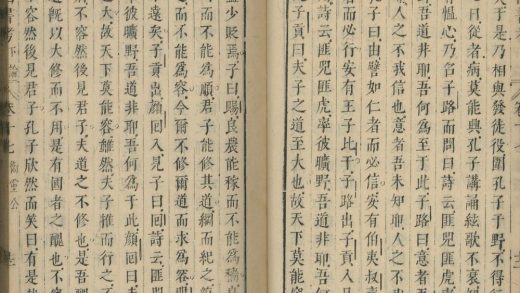 人于是乃相與發徒役圍孔子于野不得行
從者病莫能興孔子講誦絃歌不衰
慍心乃召子路而問曰詩云匪兕匪虎
野吾道非耶吾何爲至于此子路曰意者吾
人之不我信也意者吾未知耶人之不
孔子曰由譬如仁者而必信安有伯夷叔
必行安有王子比干子路出子貢入見
詩云匪兕匪虎率彼曠野吾道非耶吾
子貢曰夫子之道至大也故天下莫能容
蓋少貶焉子曰賜良農能稼而不能爲穡良
而不能爲順君子能修其道綱而紀之
而不能爲容今爾不修爾道而求爲容賜
遠矣子貢出顏回入見子曰回詩云匪兕
彼曠野吾道非耶吾何爲于此顏回曰夫
大故天下莫能容雖然夫子推而行之不
不容然後見君子夫道之不修也是吾醜
道既以大修而不用是有國者之醜也不容
容然後見君子孔子欣然而笑曰有是哉
衛靈公